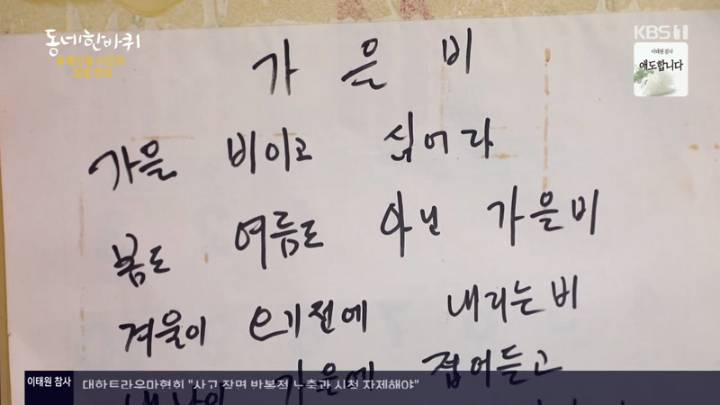 동네한바퀴
KBS 1
이태원 참사
애도합니다
가을비
가을 비이고 싶어라
봄도 여름도 아닌 가을비
겨울이 오기전에 내리는비
가을에 접어들고
이태원 참사 대한트라우마현회 "사고 장면 반복적 노출과 시청 자제해야"